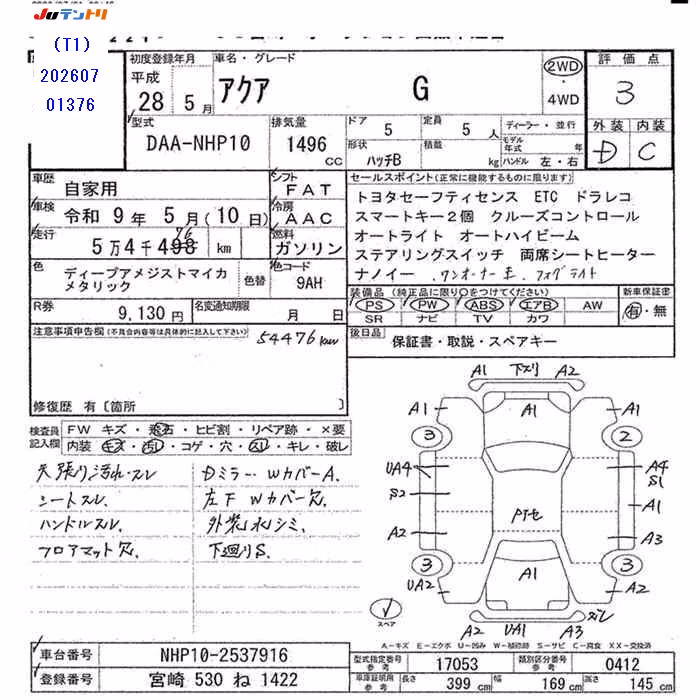 Juテントリ
(T1)
202607
01376
初度登録年月
平成
28 5月
車名・グレード
アクア G
2WD
・
4WD
評価点
3
外装 内装
D C
型式
DAA-NHP10
排気量
1496 CC
ドア 5
定員 5人
ディーラー・並行
形状 ハッチB
積載 kg
モデル年式 年
ハンドル 左・右
車歴
自家用
シフト
FAT
車検
令和 9年 5月(10日)
冷房
AAC
走行
5万4千498 km
76
燃料
ガソリン
色
ディープアメジストマイカ
メタリック
色替
色コード
9AH
R券
9,130円
名変通知期限
月 日
セールスポイント(正常に機能するものに限ります)
トヨタセーフティセンス ETC ドラレコ
スマートキー2個 クルーズコントロール
オートライト オートハイビーム
ステアリングスイッチ 両席シートヒーター
ナノイー .ワンオーナー車. フォグライト
装備品(純正品に限り○をつけてください)
PS PW ABS エアB AW
SR ナビ TV カワ
新車保証書
有・無
後日品
保証書・取説・スペアキー
注意事項申告欄(不具合内容等は具体的に記入して下さい)
54476km
修復歴 有〔箇所 〕
検査員
記入欄
FW キズ・飛石・ヒビ割・リペア跡・×要
内装 キズ・汚レ・コゲ・穴・スレ・キレ・破レ
天張り汚れ・スレ
シートスレ.
ハンドルスレ.
フロアマット穴.
Dミラー・WカバーA.
左下Wカバー穴.
外装水シミ.
下廻りS.
A1 下スリ A2
A1 A1 A1
3 2
UA4 A4
S2 S1
A1
A2 A3
3 3
UA2 A1 A2
スペア
A2 UA1 A3 ズレ
A-キズ E-エクボ U-凹み W-補修跡 S-サビ C-腐食 XX-交換済
車台番号
NHP10-2537916
登録番号
宮崎 530 ね 1422
型式指定番号
参考
17053
類別区分番号
参考
0412
車庫証明用
参考
長さ 399 cm 幅 169 cm 高さ 145 cm